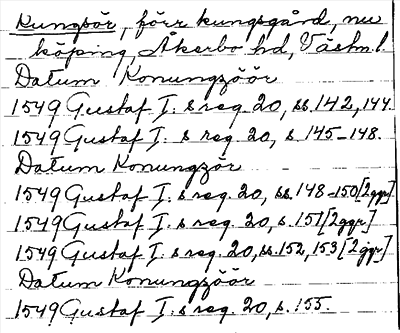 Kungsör, förr kungsgård, nu
köping, Åkerbo hd, Västm. l.
Datum Konungzöör
1549 Gustaf I:s reg. 20, ss. 142, 144.
1549 Gustaf I:s reg. 20, s. 145-148.
Datum Konungzör
1549 Gustaf I:s reg. 20, ss. 148-150 [2 ggr]
1549 Gustaf I:s reg. 20, s. 151 [2 ggr]
1549 Gustaf I:s reg. 20, ss. 152, 153 [2 ggr]
Datum Konungzöör
1549 Gustaf I:s reg. 20, s. 155.